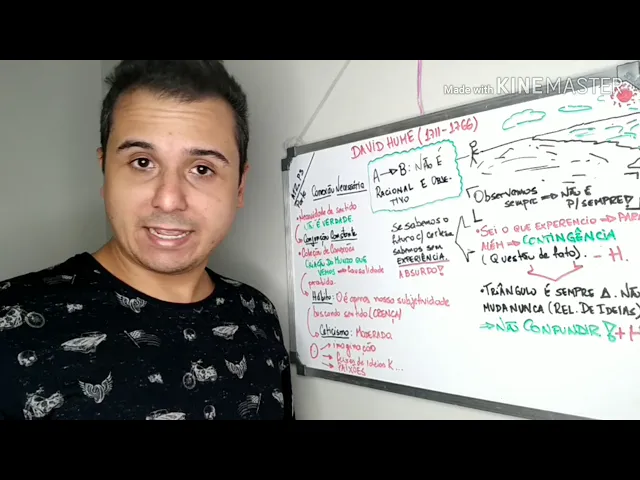 Made with KINEMASTER
DAVID HUME (1711-1766)
CONEXÃO NECESSÁRIA
•NECESSIDADE DE SENTIDO
É VERDADE.
• CONJUNÇÃO CONSTANTE
CRIAÇÃO DO MUNDO QUE
VEMOS → CAUSALIDADE
•HÁBITO: O É APENAS NOSSA SUBJETIVIDADE
BUSCANDO SENTIDO (CRENÇA)
CETICISMO: MODERADA
→ IMAGINAÇÃO
→ FEIXES DE IDEIAS K...
→ PAIXÕES
A → B: NÃO É
RACIONAL E OBJE-
TIVO
SE SABEMOS O
FUTURO C/ CERTEZA
SABEMOS SEM
EXPERIÊNCIA.
ABSURDO!
OBSERVAMOS
SEMPRE ⇒ NÃO É
P/SEMPRE!
•SEI O QUE EXPERENCIO ⇒ PARA
ALÉM ⇒ CONTINGÊNCIA
(QUESTÃO DE FATO). - H.
•TRIÂNGULO É SEMPRE Δ. NÃO
MUDA NUNCA (REL. DE IDEIAS)
⇒ NÃO CONFUNDIR! + H